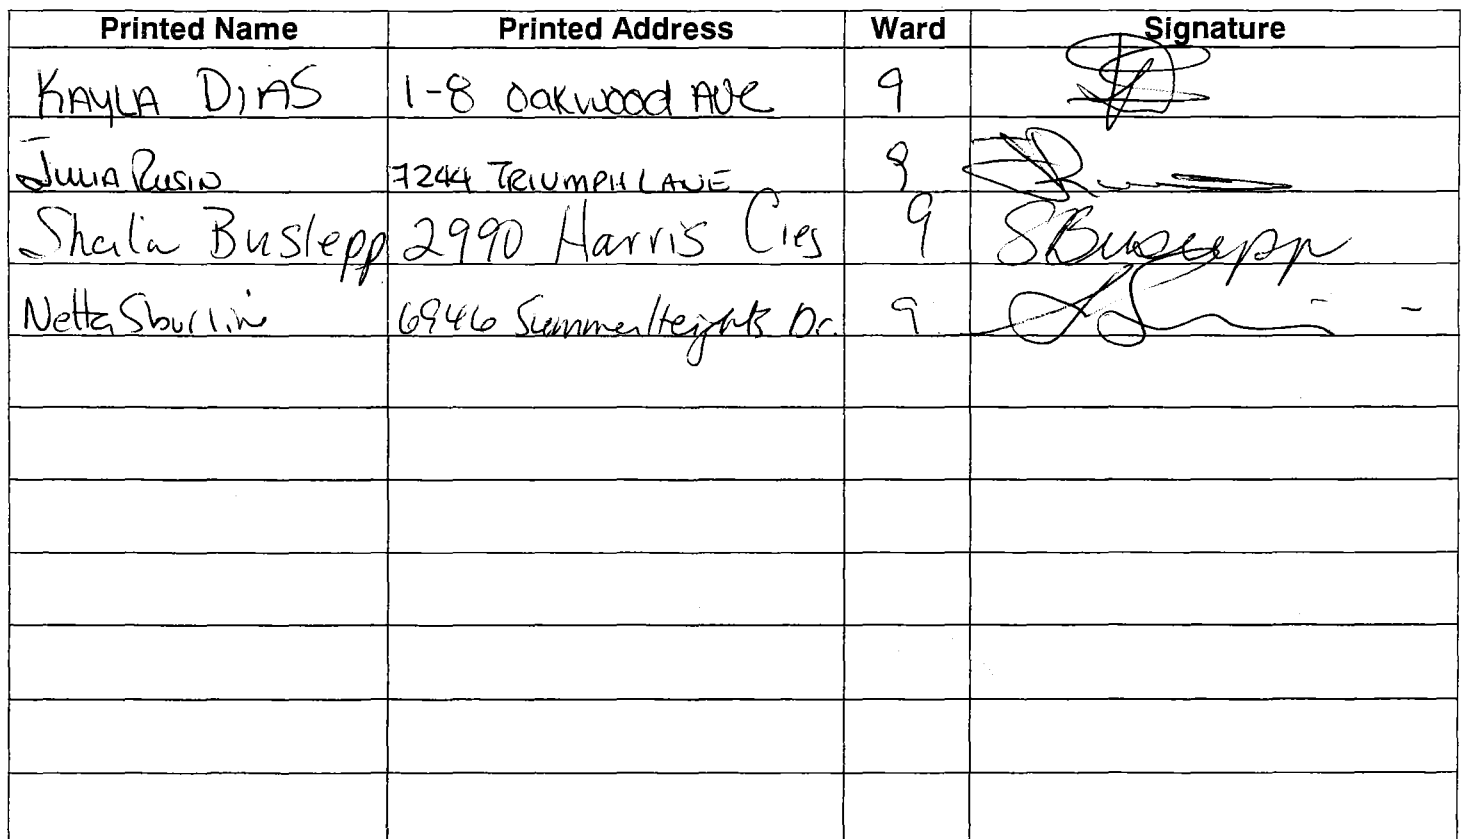 Printed Name Printed Address Ward Signature
KAYLA DIAS 1-8 Oakwood AVE 9
JULIA RUSIN 7244 TRIUMPH LANE 9
Shaila Buslepp 2990 Harris Cres 9 SBuslepp
Netta Sburlini 6946 Summer Heights Dr. 9